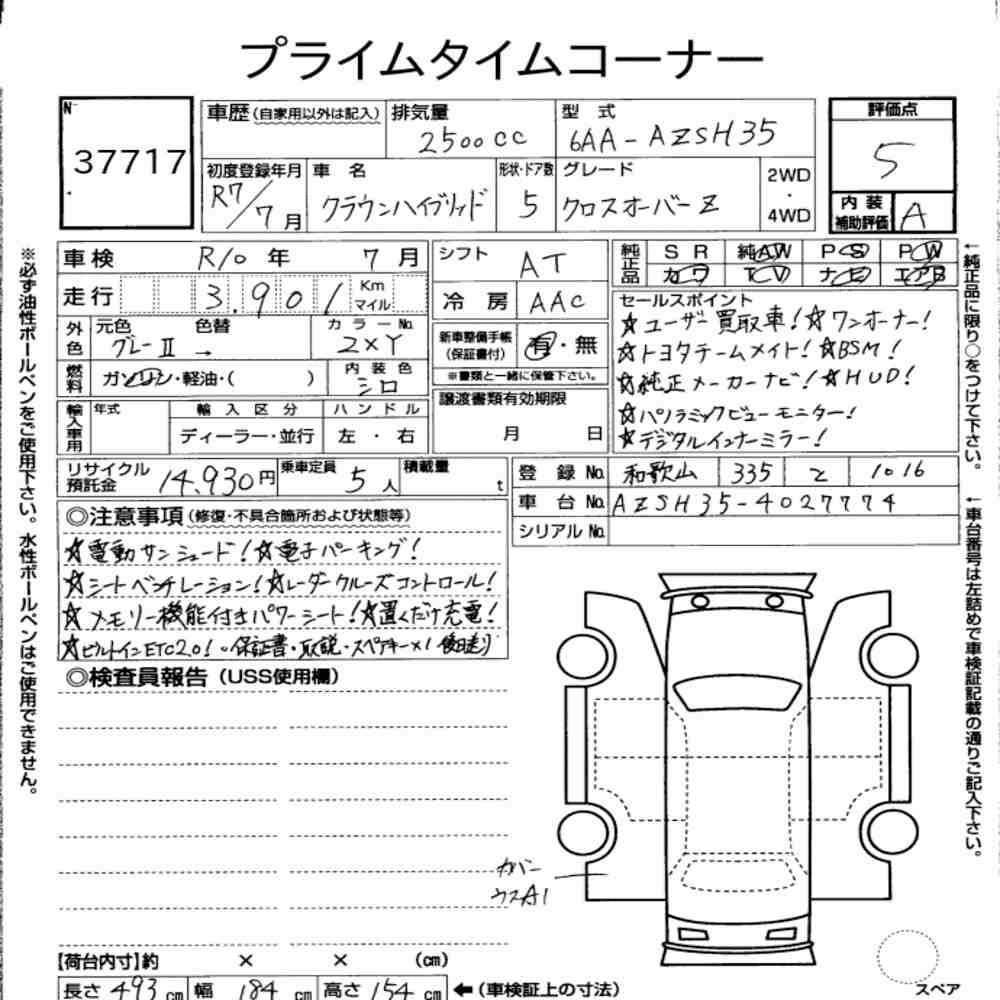 プライムタイムコーナー
No. 37717
車歴(自家用以外は記入) 排気量 2500cc 型式 6AA-AZSH35
評価点 5
初度登録年月 R7/7月 車名 クラウンハイブリッド 形状・ドア数 5 グレード クロスオーバーZ 2WD・4WD
内装補助評価 A
車検 R10年 7月 シフト AT
純正品 SR 純AW PS PW
カワ TV ナビ エアB
走行 3.901 Km マイル 冷房 AAC
外色 元色 グレーII 色替 → カラーNo. 2XY
新車整備手帳(保証書付) 有・無
※書類と一緒に保管下さい。
燃料 ガソリン・軽油・( ) 内装色 シロ
譲渡書類有効期限 月 日
輸入車用 年式 輸入区分 ハンドル
ディーラー・並行 左・右
セールスポイント
☆ユーザー買取車!☆ワンオーナー!
☆トヨタチームメイト!☆BSM!
☆純正メーカーナビ!☆HUD!
☆パノラミックビューモニター!
☆デジタルインナーミラー!
リサイクル預託金 14.930円 乗車定員 5人 積載量 t
登録No. 和歌山 335 と 1016
車台No. AZSH35-4027774
シリアルNo.
◎注意事項(修復・不具合箇所および状態等)
☆電動サンシェード!☆電子パーキング!
☆シートベンチレーション!☆レーダークルーズコントロール!
☆メモリー機能付きパワーシート!☆置くだけ充電!
☆ビルトインETC2.0!○保証書・取説・スペアキー×1 後日送り
◎検査員報告(USS使用欄)
カバー
ウスA1
【荷台内寸】約 × × (cm)
長さ 493cm 幅 184cm 高さ 154cm ←(車検証上の寸法)
スペア
※必ず油性ボールペンをご使用下さい。水性ボールペンはご使用できません。
←純正品に限り○をつけて下さい。
←車台番号は左詰めで車検証記載の通りご記入下さい。